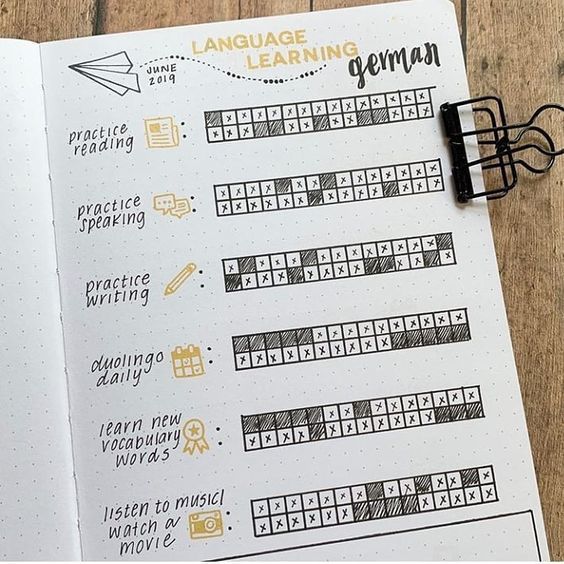 LANGUAGE
LEARNING
german
JUNE
2019
practice
reading
:
practice
speaking
:
practice
writing
:
duolingo
daily
:
learn new
vocabulary
words
:
listen to music/
watch a
movie
: